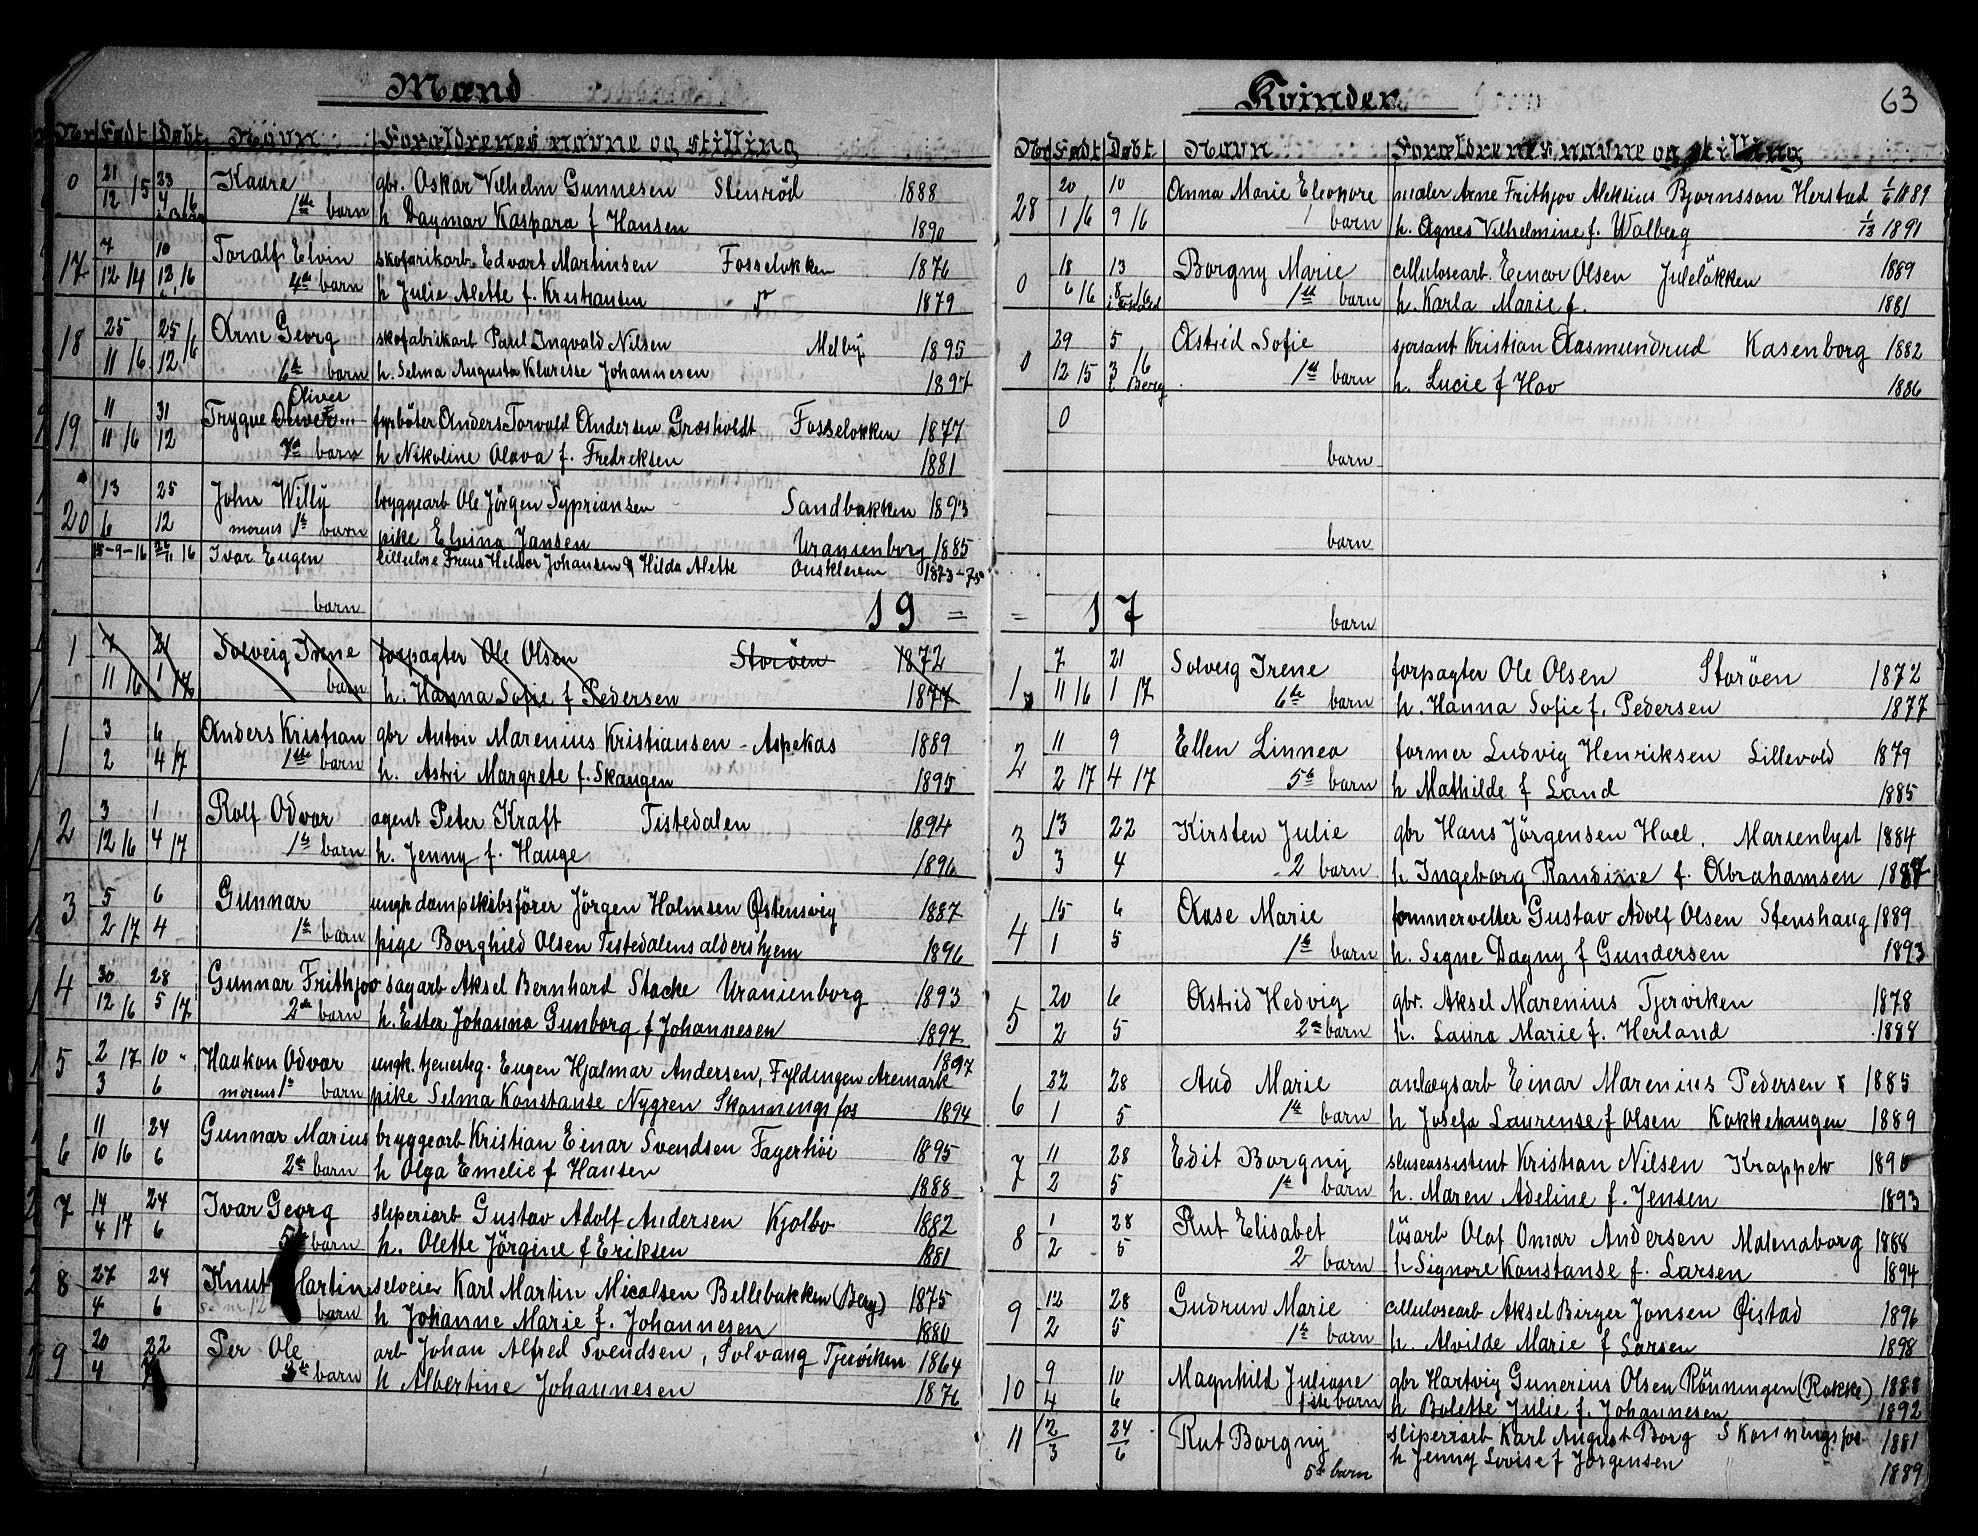 Mænd
Nr Født Døbt Navn Forældrenes navne og stilling
0 21 23 Kaare gbr. Oskar Vilhelm Gunnesen Stenröd 1888
12 15 4 16 i Berg 1ste barn h Dagmar Kaspara f Hansen 1890
17 7 10 Toralf Elvin skofabrikarb Edvart Martinsen Fosseløkken 1876
12 14 12 16 4de barn h Julie Alette f. Kristiansen 1879
18 25 25 Arne Georg skofabrikarb Paul Ingvald Nilsen Melby 1895
11 16 12 16 6te barn h. Selma Augusta Klaresse Johannesen 1897
Oliver
19 11 31 Trygve Oliver fyrböter Anders Torvald Andersen Grosholdt Fosseløkken 1877
11 16 12 7de barn h Nikoline Olava f. Fredriksen 1881
20 13 25 John Willy bryggearb Ole Jörgen Sypriansen Sandbakken 1893
6 12 morens 1te barn pike Elvina Jansen Uranienborg 1885
15-9-16 26/11 16 Ivar Eugen cellulose Frens Heldor Johansen & Hilda Alette 1873-75
barn 19 =
1 7 21 Solveig Irene forpagter Ole Olsen Storöen 1872
11 16 1 17 barn h. Hanna Sofie f Pedersen 1877
1 3 6 Anders Kristian gbr Anton Marenius Kristiansen - Aspekas 1889
2 4 17 1ste barn h. Astri Margrete f. Skangen 1895
2 3 1 Rolf Odvar agent Peter Kraft Tistedalen 1894
12 16 4 17 1te barn h. Jenny f. Hauge 1896
3 5 6 Gunnar ungk dampskibsfører Jörgen Holmsen Østensvig 1887
2 17 4 1te barn pige Borghild Olsen Tistedalens aldershjem 1896
4 30 28 Gunnar Frithjov sagarb Aksel Bernhard Stacke Uranienborg 1893
12 16 5 17 2det barn h. Ester Johanna Gunborg f Johannesen 1897
5 2 17 10 " Haakon Odvar ungk. tjenesteg. Eugen Hjalmar Andersen, Fyldingen Aremark 1897
3 6 morens 1te barn pike Selma Konstanse Nygren Skonningsfos 1894
6 11 24 Gunnar Marius bryggearb Kristian Einar Svendsen Fagerhöi 1895
10 16 6 2det barn h Olga Emelie f Hansen 1888
7 14 24 Ivar Georg sliperiarb Gustav Adolf Andersen Kjølbo 1882
4 17 6 5te barn h. Olette Jörgine f Eriksen 1881
8 27 24 Knut Martin selveier Karl Martin Micalsen Bellebakken (Berg) 1875
4 6 se nr 12 barn h Johanne Marie f. Johannesen 1880
9 20 22 Per Ole arb Johan Alfred Svendsen, Solvang Tjerviken 1864
4 3de barn h Albertine Johannesen 1876
Kvinder 63
Nr Født Døbt Navn Forældrenes navne og stilling
28 20 10 Anna Marie Eleonore maler Arne Frithjov Aleksius Bjørnsson Herstad 1/6 1889
1 16 9 16 1 barn h. Agnes Vilhelmine f. Walberg 1/12 1891
0 18 13 Borgny Marie cellulosearb. Einar Olsen Juleløkken 1889
6 16 8 16 1ste barn h. Karla Marie f. 1881
0 29 5 Astrid Sofie sjersant Kristian Aasmundrud Kasenborg 1882
12 15 3 16 i Berg 1te barn h. Lucie f Hov 1886
0
barn
barn
= 17 barn
1 7 21 Solveig Irene forpagter Ole Olsen Storöen 1872
11 16 1 17 6te barn h. Hanna Sofie f. Pedersen 1877
2 11 9 Ellen Linnea former Ludvig Henriksen Lillevold 1879
2 17 4 17 5te barn h Mathilde f Land 1885
3 13 22 Kirsten Julie gbr Hans Jörgensen Hoel. Marienlyst 1884
3 4 2 barn h Ingeborg Randine f. Abrahamsen 1887
4 15 6 Aase Marie tømmervelter Gustav Adolf Olsen Stenshaug 1889
1 5 1te barn h. Signe Dagny f Gundersen 1893
5 20 6 Astrid Hedvig gbr. Aksel Marenius Tjerviken 1878
2 5 2de barn h. Laura Marie f. Herland 1888
6 22 28 Aud Marie anlægsarb Einar Marenius Pedersen 1885
1 5 1te barn h Josefa Laurense f Olsen Kokkehaugen 1889
7 11 28 Edit Borgny sluseassistent Kristian Nilsen Krappeto 1890
2 5 1te barn h. Maren Adeline f. Jensen 1893
8 1 28 Rut Elisabet lösarb Olaf Omar Andersen Malenaborg 1888
2 5 2 barn h Signore Konstanse f. Larsen 1894
9 12 28 Gudrun Marie cellulosearb Aksel Birger Jonsen Øistad 1896
2 5 1te barn h. Alvilde Marie f Larsen 1898
10 9 10 Magnhild Juliane gbr Hartvig Gunerius Olsen Rönningen (Rokke) 1888
4 6 1ste barn h Bolette Julie f. Johannesen 1892
11 12 24 Rut Borgny sliperiarb Karl August Borg Skonningsfos 1881
3 6 5te barn h Jenny Lovise f Jörgensen 1889